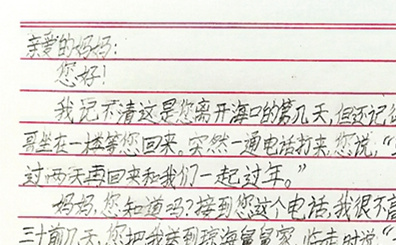 亲爱的妈妈:
您好!
我记不清这是您离开海口的第几天,但还记得
哥坐在一楼等您回来,突然一通电话打来,您说,“
过两天再回来和我们一起过年。”
妈妈,您知道吗?接到您这个电话,我很不高
三十前几天,您把我送到琼海舅舅家,临走时说“